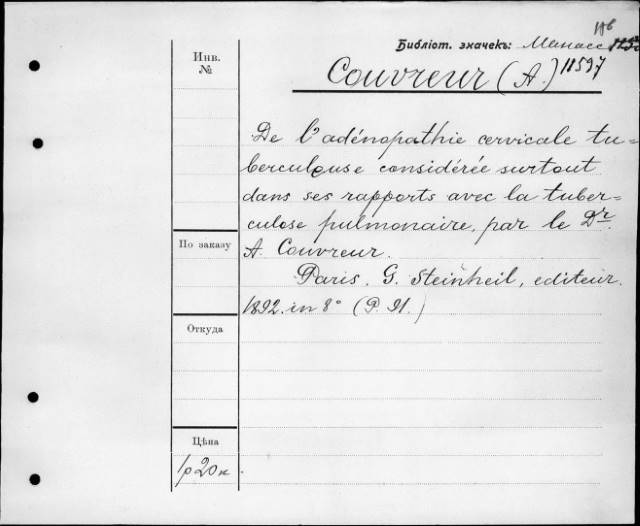 Инв.
№
Библіот. значекъ: Манасс
Couvreur (A.) 11597
De l'adénopathie cervicale tu=
berculeuse considérée surtout
dans ses rapports avec la tuber=
culose pulmonaire, par le Dr.
A. Couvreur.
Paris. G. Steinheil, editeur.
1892. in 8° (P. 91.)
По заказу
Откуда
Цѣна
1р 20к.